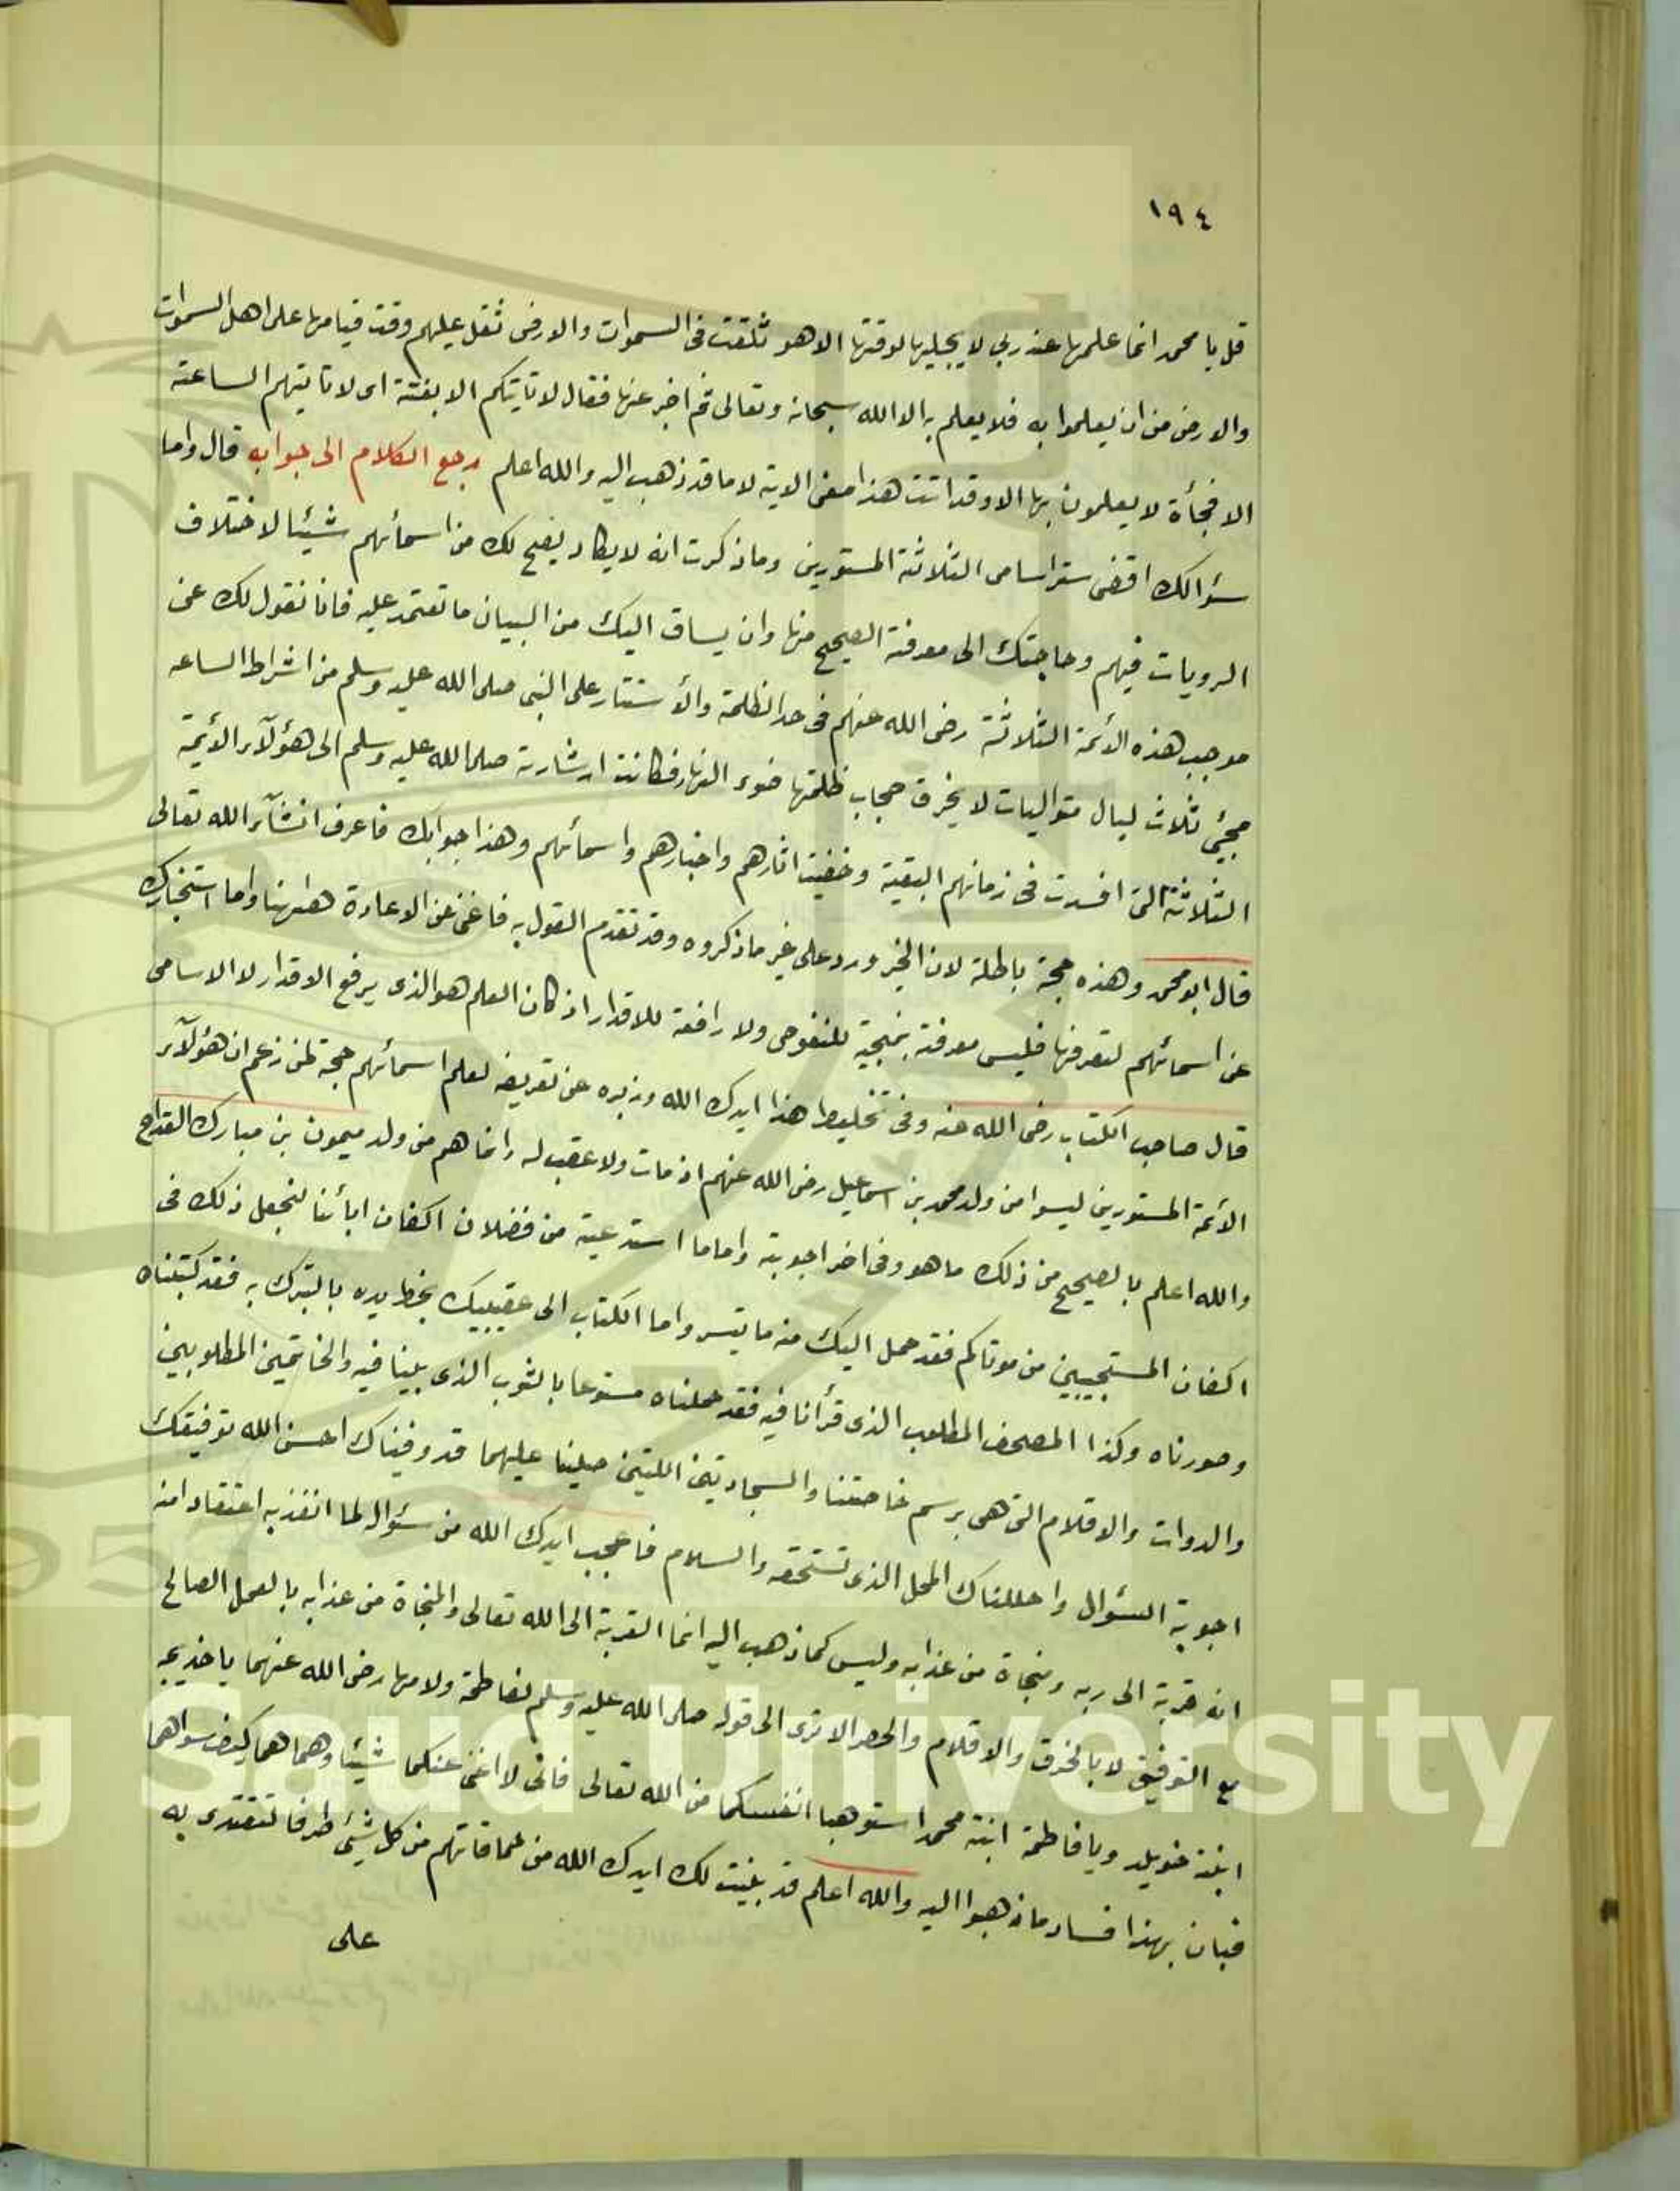 ١٩٤
قل يا محمد انما علمها عند ربي لا يجليها لوقتها الا هو ثقلت فى السموات والارض ثقل عليهم وقت قيامها على اهل السموات
والارض من ان يعلموا به فلا يعلم به الا الله سبحانه وتعالى ثم اخبر عنها فقال لا تأتيكم الا بغتة اى لا تاتيهم الساعة
الا فجأة لا يعلمون بها الا وقد اتت هذا معنى الاية لا ما قد ذهب اليه والله اعلم رجع الكلام الى جوابه قال واما
سؤالك اقضى ستر اسامى الثلاثة المستورين وما ذكرت انه لا يكاد يصح لك من اسمائهم شيئا لاختلاف
الرويات فيهم وحاجتك الى معرفة الصحيح منها وان يساق اليك من البيان ما تعتمد عليه فانا نقول لك عن
موجب هذه الائمة الثلاثة رضى الله عنهم فى حد الظلمة والأستتار على النبى صلى الله عليه وسلم من اشراط الساعه
مجيئ ثلاث ليال متواليات لا يخرق حجاب ظلمتها ضوء النهار فكانت ارشارته صلى الله عليه وسلم الى هؤلآء الائمة
الثلاثة التى افسدت فى زمانهم البقية وخفيت اثارهم واخبارهم واسمائهم وهذا جوابك فاعرف انشآء الله تعالى
قال ابو محمد وهذه حجة باطلة لان الخبر ورد على غير ما ذكروه وقد تقدم القول به فاغنى عن الاعادة هاهنا واما استخبارك
عن اسمائهم لتعرفها فليس معرفة بمنجية للنفوس ولا رافعة للاقدار اذ كان العلم هو الذى يرفع الاقدار لا الاسامى
قال صاحب الكتاب رضى الله عنه وفى تخليط هذا ايدك الله وزبره عن تعريفه لعلم اسمائهم حجة لمن زعم ان هؤلآء
الائمة المستورين ليسوا من ولد محمد بن اسماعيل رضى الله عنهم اذ مات ولا عقب له وانما هم من ولد ميمون بن مبارك القداح
والله اعلم بالصحيح من ذلك ما هو وفى اخر اجوبته واما ما استدعيته من فضلان اكفان ابائنا لنجعل ذلك فى
اكفان المستجيبين من موتاكم فقد حمل اليك منه ما تيسر واما الكتاب الى عقيبيك بخط يده بالتبرك به فقد كتبناه
وصورناه وكذا المصحف المطلوب الذى قرأنا فيه فقد حملناه مستوعا بالثوب الذى بلينا فيه والخاتمين المطلوبين
والدوات والاقلام التى هى برسم خاصتنا والسجادتين اللتين صلينا عليهما قد وفيناك احسن الله توفيقك
اجوبة السؤال واحللناك المحل الذى تستحقه والسلام فاعجب ايدك الله من سؤال لما انفذ به اعتقاد امنه
انه قربة الى ربه ومنجاة من عذابه وليس كما ذهب اليه انما القربة الى الله تعالى والمنجاة من عذابه بالعمل الصالح
مع التوفيق لا بالخرق والاقلام والحصر الا ترى الى قوله صلى الله عليه وسلم لفاطمة ولامها رضى الله عنهما يا خديجه
ابنة خويلد ويا فاطمة ابنة محمد استوهبا انفسكما من الله تعالى فانى لا اغنى عنكما شيئا وهما هما كيف سواهما
فبان بهذا فساد ما ذهبوا اليه والله اعلم قد بينت لك ايدك الله من حماقاتهم من كل شئى طرفا لتقتدى به
على
King Saud University
1957